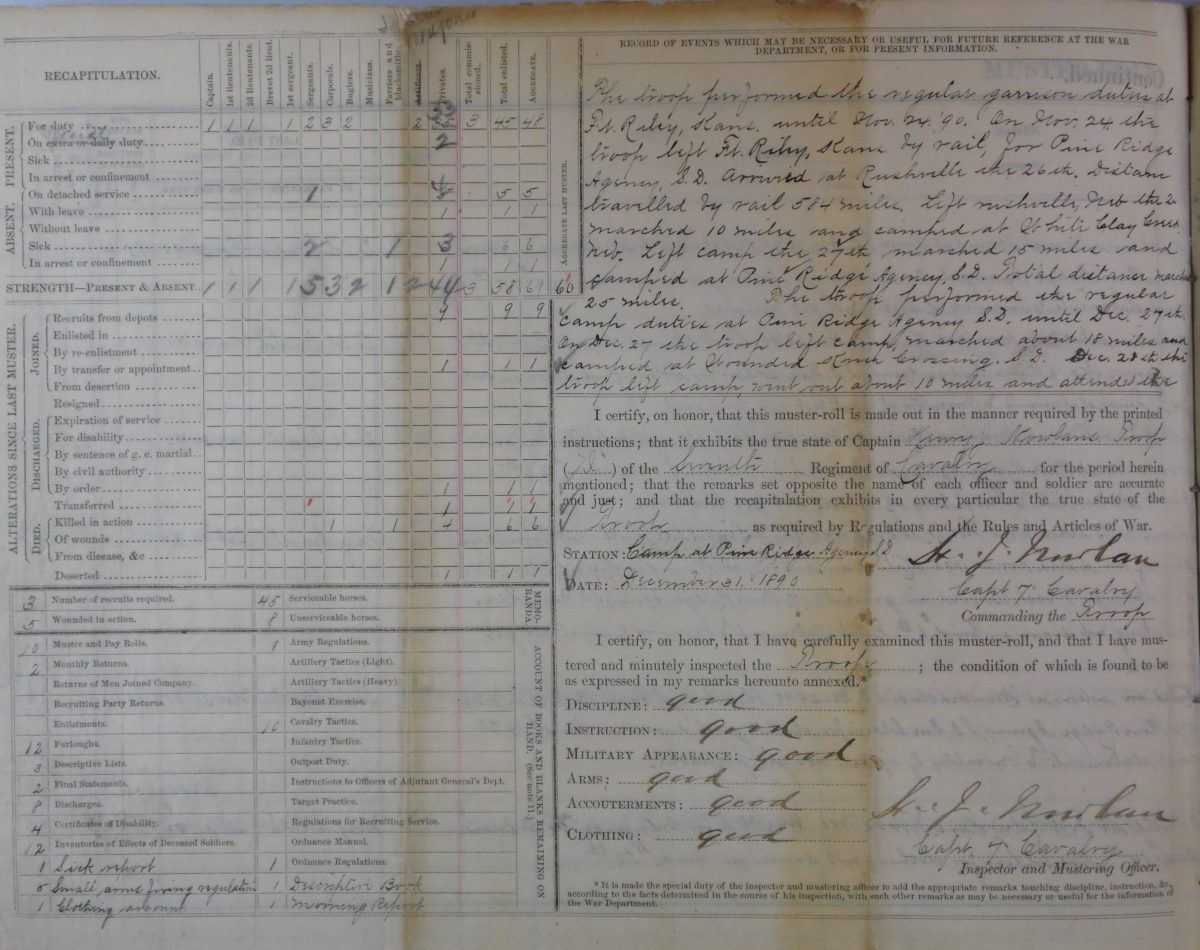 RECAPITULATION.
Captain.
1st lieutenants.
2d lieutenants.
Brevet 2d lieut.
1st sergeant.
Sergeants.
Corporals.
Buglers
Musicians.
Farriers and blacksmiths.
Artificers.
Privates.
Total commissioned.
Total enlisted.
AGGREGATE.
AGGREGATE LAST MUSTER.
PRESENT.
For duty 1 1 1 1 2 3 2 2 3 45 48
On extra or daily duty 2
Sick
In arrest or confinement
ABSENT.
On detached service 1 5 5
With leave 1 1 1
Without leave
Sick 2 1 3 6 6
In arrest or confinement 1 1 1
STRENGTH—PRESENT & ABSENT 1 1 1 1 5 3 2 1 2 44 3 58 61 60
ALTERATIONS SINCE LAST MUSTER.
JOINED.
Recruits from depots 9 9 9
Enlisted in
By re-enlistment
By transfer or appointment 1 1 1
From desertion
Resigned
DISCHARGED.
Expiration of service
For disability
By sentence of g. c. martial
By civil authority
By order 1 1 1
Transferred
DIED.
Killed in action 1 1 4 6 6
Of wounds
From disease, &c
Deserted 1 1 1
MEMORANDA
3 Number of recruits required. 45 Serviceable horses.
5 Wounded in action. 8 Unserviceable horses.
ACCOUNT OF BOOKS AND BLANKS REMAINING ON HAND. (See note 11.)
10 Muster and Pay Rolls. 1 Army Regulations.
2 Monthly Returns. Artillery Tactics (Light).
Returns of Men Joined Company. Artillery Tactics (Heavy).
Recruiting Party Returns. Bayonet Exercise.
Enlistments. 10 Cavalry Tactics.
12 Furloughs. Infantry Tactics.
3 Descriptive Lists. Outpost Duty.
2 Final Statements. Instructions to Officers of Adjutant General's Dept.
8 Discharges. Target Practice.
4 Certificates of Disability. Regulations for Recruiting Service.
12 Inventories of Effects of Deceased Soldiers. Ordnance Manual.
1 Sick report 1 Ordnance Regulations.
5 Small arms firing regulation 1 Descriptive Book
1 Clothing account 1 Morning Report
RECORD OF EVENTS WHICH MAY BE NECESSARY OR USEFUL FOR FUTURE REFERENCE AT THE WAR
DEPARTMENT, OR FOR PRESENT INFORMATION.
The troop performed the regular garrison duties at
Ft. Riley, Kans. until Nov. 24. 90. On Nov. 24 the
troop left Ft. Riley, Kans by rail, for Pine Ridge
Agency, S.D. Arrived at Rushville the 26th. Distanc
travelled by rail 584 miles. Left rushville, Neb the 2
marched 10 miles and camped at White Clay Creek
Neb. Left camp the 27th marched 15 miles and
camped at Pine Ridge Agency, S.D. Total distance marched
25 mile. The troop performed the regular
camp duties at Pine Ridge Agency S.D. until Dec. 27th.
On Dec. 27 the troop left camp, marched about 18 miles and
camped at Wounded Knee Crossing S.D. Dec. 28th the
troop left camp, went out about 10 miles and attended the
I certify, on honor, that this muster-roll is made out in the manner required by the printed
instructions; that it exhibits the true state of Captain Henry J. Nowlans Troop
("I") of the Seventh Regiment of Cavalry for the period herein
mentioned; that the remarks set opposite the name of each officer and soldier are accurate
and just; and that the recapitulation exhibits in every particular the true state of the
Troop as required by Regulations and the Rules and Articles of War.
STATION: Camp at Pine Ridge Agency S.D.
H. J. Nowlan
DATE: December 31. 1890
Capt 7. Cavalry
Commanding the Troop
I certify, on honor, that I have carefully examined this muster-roll, and that I have mus-
tered and minutely inspected the Troop; the condition of which is found to be
as expressed in my remarks hereunto annexed.*
DISCIPLINE: good
INSTRUCTION: good
MILITARY APPEARANCE: good
ARMS: good
ACCOUTERMENTS: good
CLOTHING: good
H. J. Nowlan
Capt. 7. Cavalry
Inspector and Mustering Officer.
* It is made the special duty of the inspector and mustering officer to add the appropriate remarks touching discipline, instruction, &c.,
according to the facts determined in the course of his inspection, with such other remarks as may be necessary or useful for the information of
the War Department.